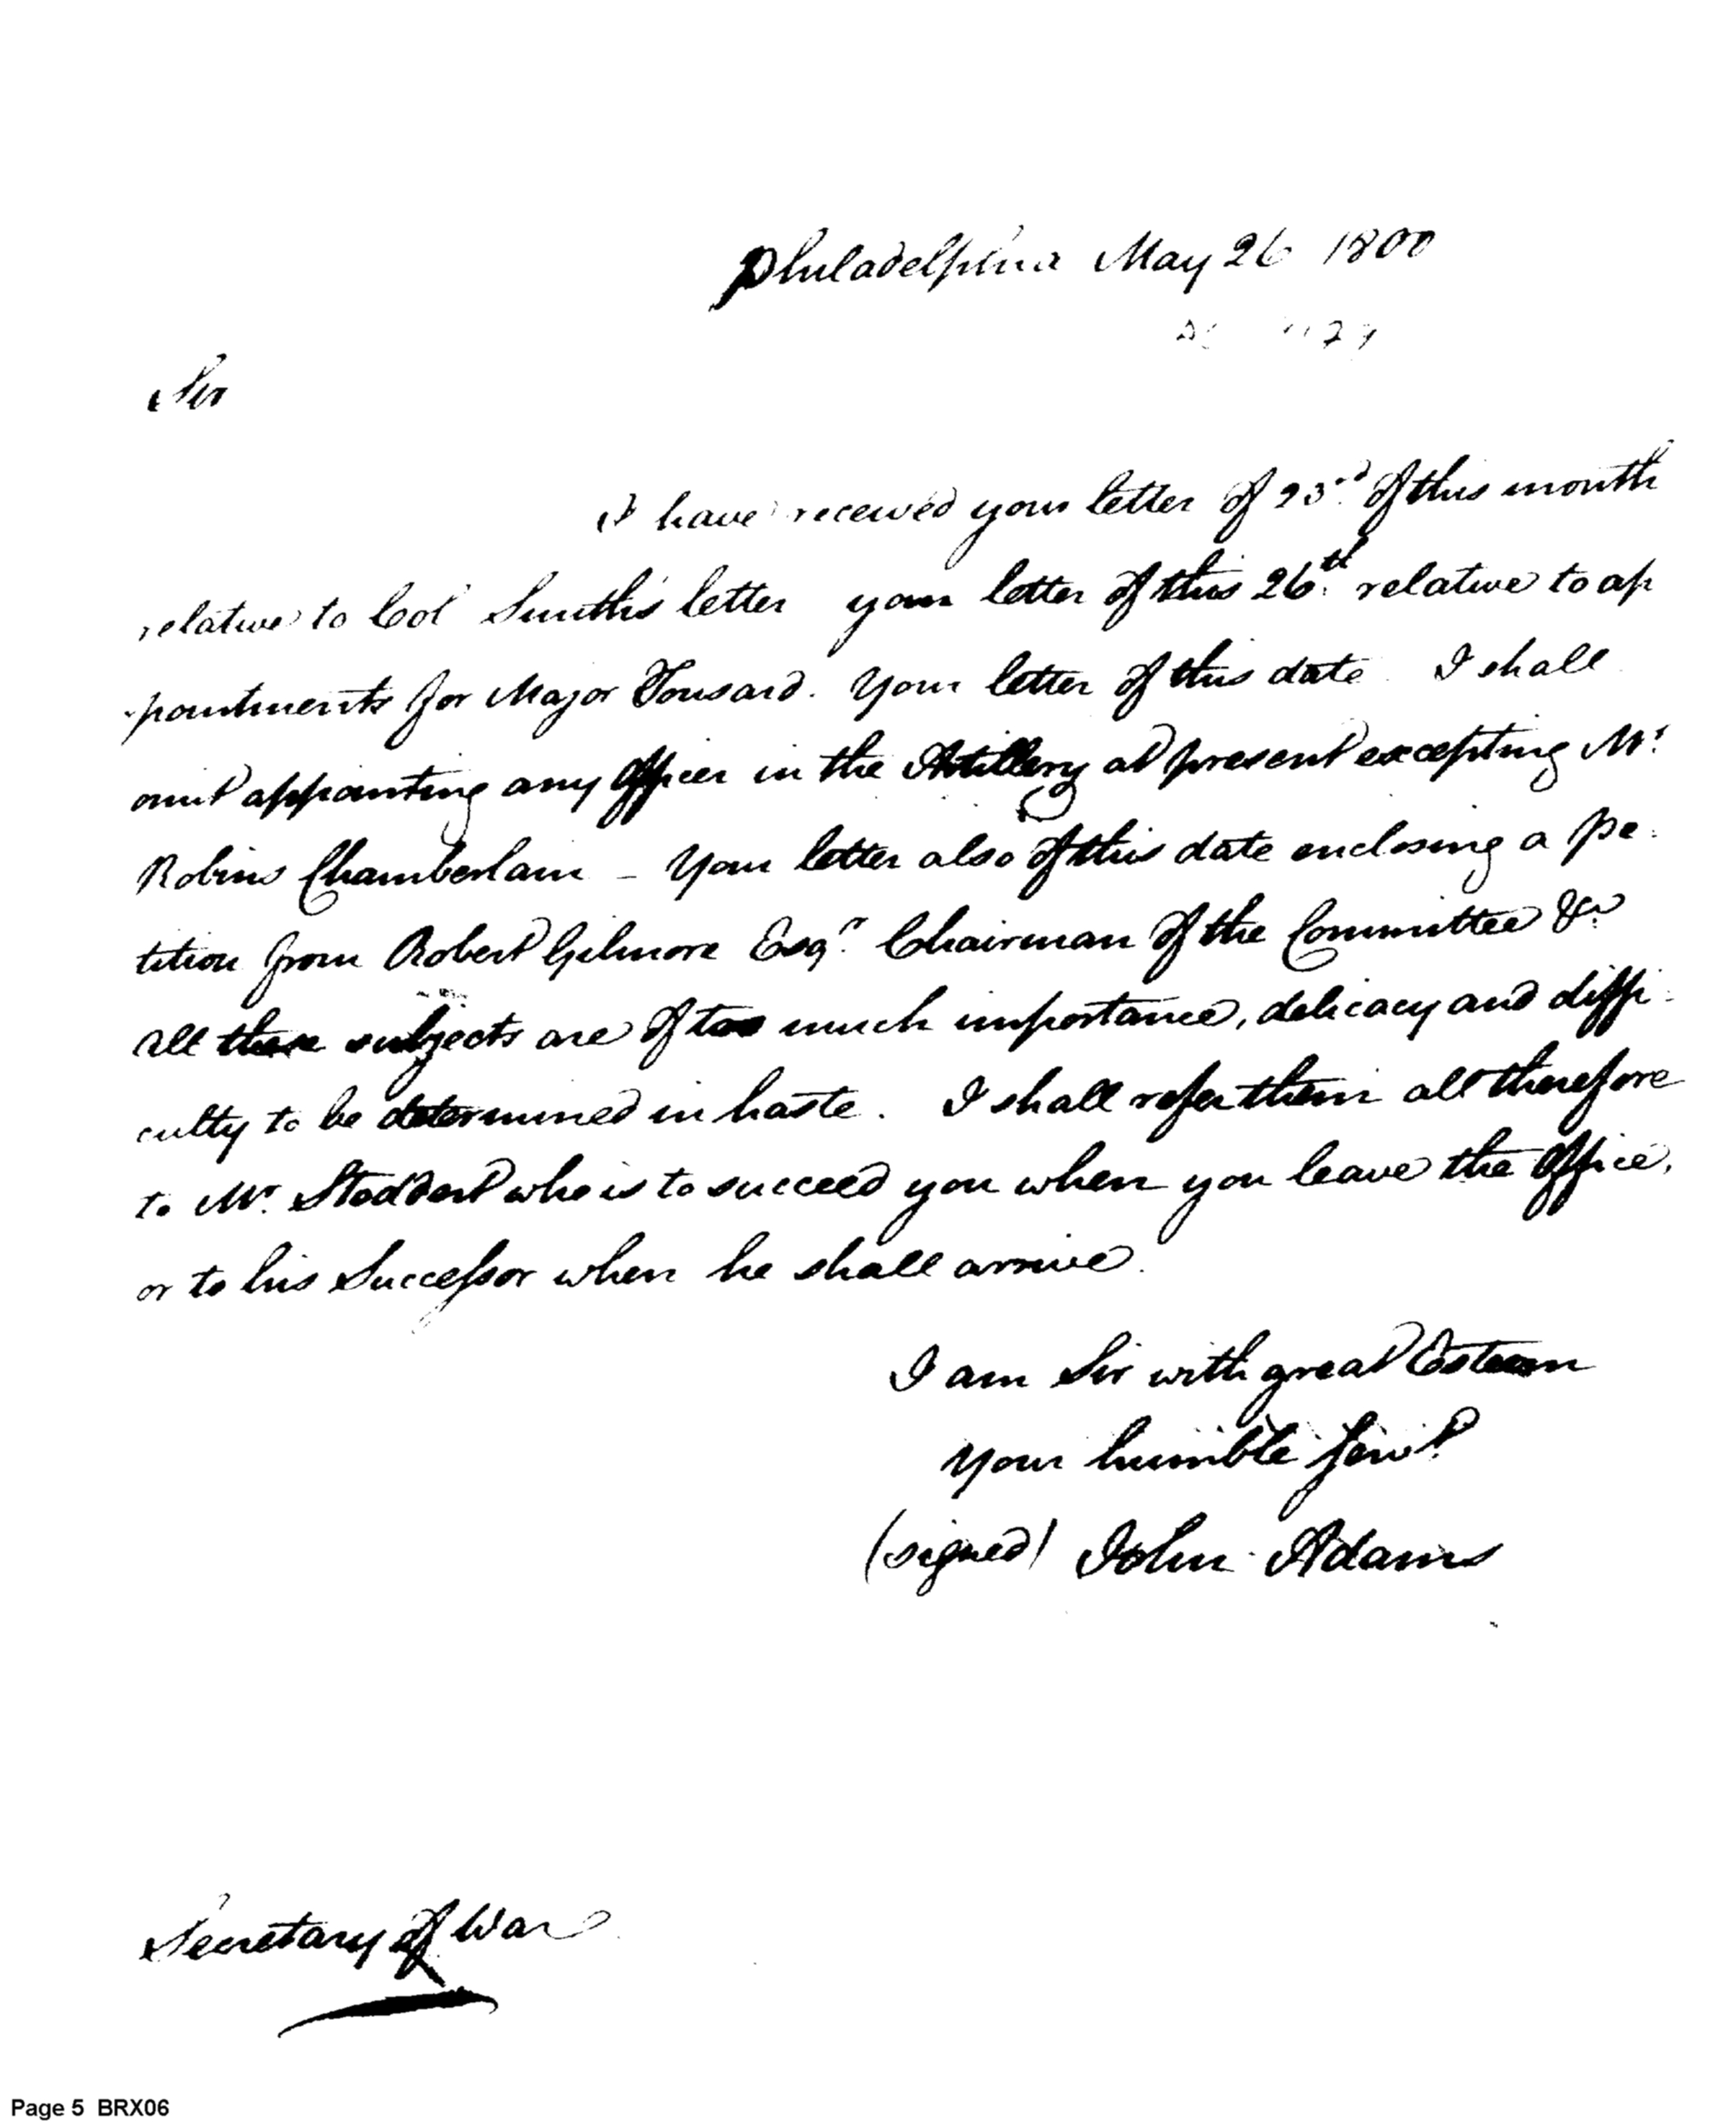 Philadelphia May 26 1800
Sir
I have received your letter of 23rd of this month
relative to Col Smith's letter your letter of this 26th relative to ap
pointments for Major Tousard. Your letter of this date. I shall
omit appointing any Officer in the Artillery at present excepting Mr.
Robins Chamberlain – Your letter also of this date enclosing a pe
tition from Robert Gilmore Esqr. Chairman of the Committee &c
All these subjects are of too much importance, delicacy and diffi
culty to be determined in haste. I shall refer them all therefore
to Mr. Stoddert who is to succeed you when you leave the Office,
or to his Successor when he shall arrive.
I am Sir with great Esteem
Your humble Servt
(signed) John Adams
Secretary of War
Page 5 BRX06